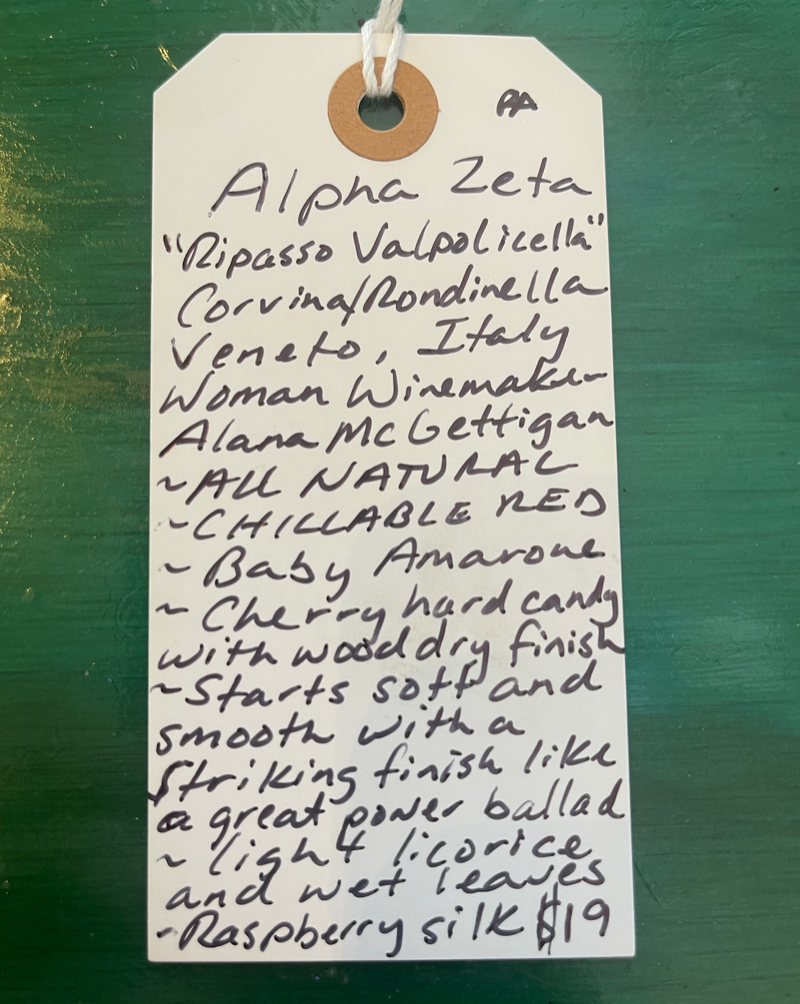 AA
Alpha Zeta
"Ripasso Valpolicella"
Corvina/Rondinella
Veneto, Italy
Woman Winemaker
Alana McGettigan
~ALL NATURAL
~CHILLABLE RED
~Baby Amarone
~Cherry hard candy
with wood dry finish
~Starts soft and
smooth with a
striking finish like
a great power ballad
~light licorice
and wet leaves
~Raspberry silk $19